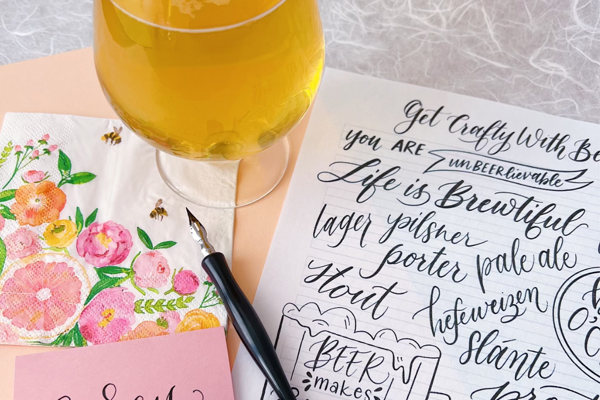 Get Crafty With
you ARE unBEERlievable
Life is Brewtiful
lager pilsner
porter pale ale
stout hefeweizen
Slánte
BEER
makes